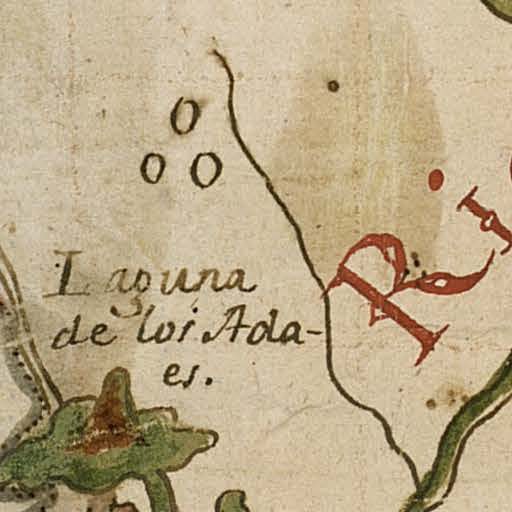 Laguna
de los Ada-
es.
Ri